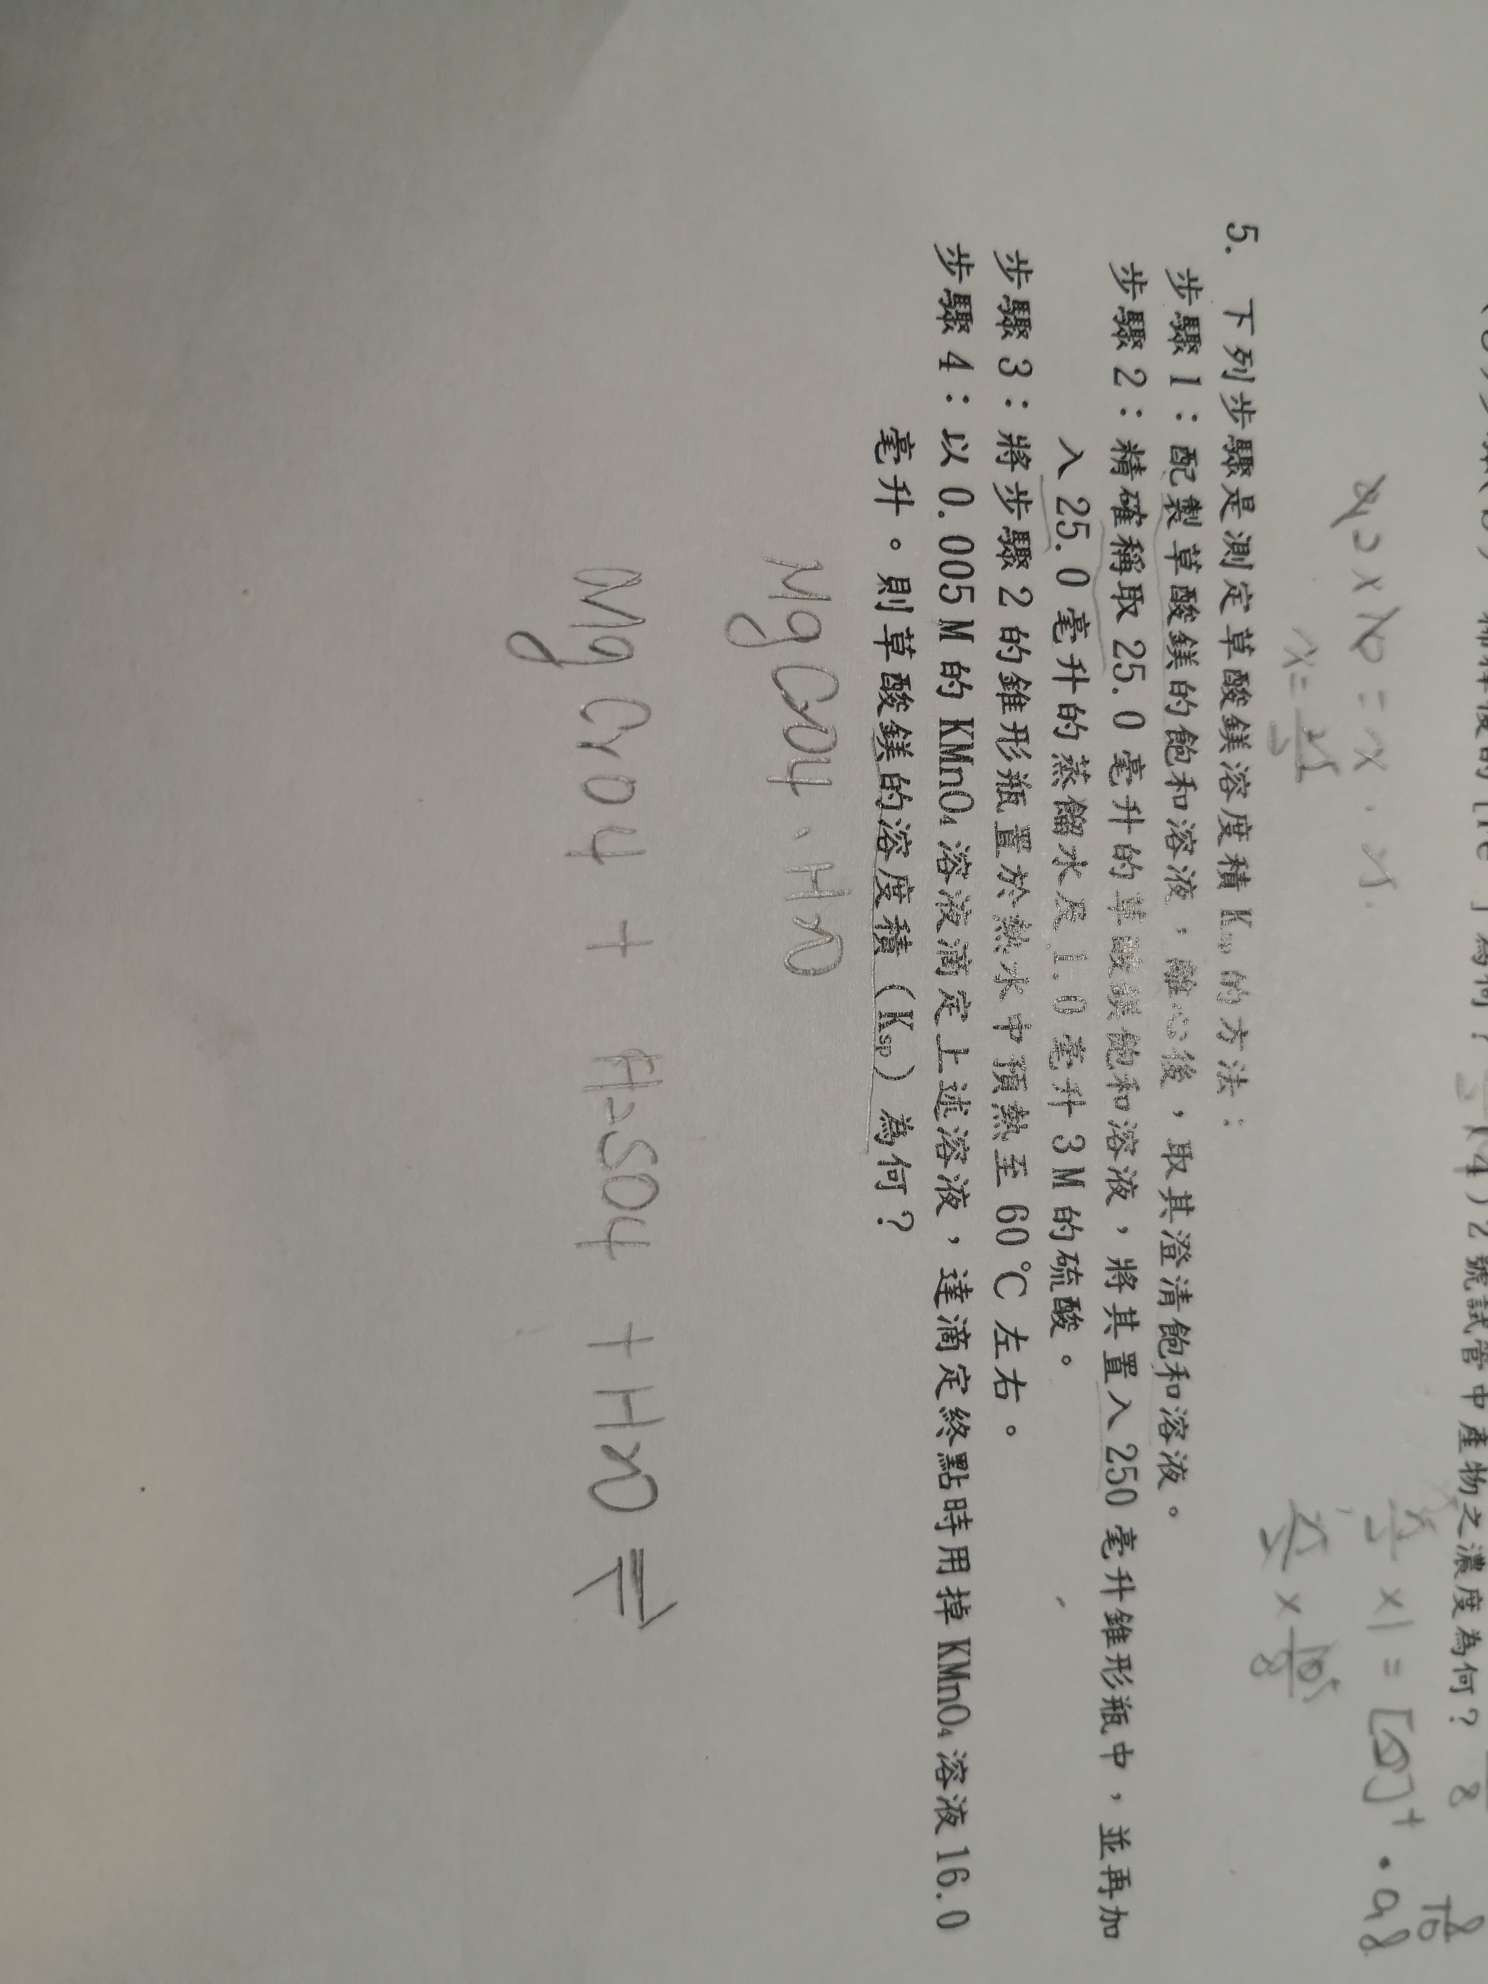 4) 2號試管中產物之濃度為何?
5. 下列步驟是測定草酸鎂溶度積Ksp的方法:
步驟1:配製草酸鎂的飽和溶液,離心後,取其澄清飽和溶液。
步驟2:精確稱取25.0毫升的草酸鎂飽和溶液,將其置入250毫升錐形瓶中,並再加
入25.0毫升的蒸餾水及1.0毫升3M的硫酸。
步驟3:將步驟2的錐形瓶置於熱水中預熱至60℃左右。
步驟4:以0.005M的KMnO₄溶液滴定上述溶液,達滴定終點時用掉KMnO₄溶液16.0
毫升。則草酸鎂的溶度積(Ksp)為何?
MgCrO4、H2O
MgCrO4 + H2SO4 + H2O ⇌